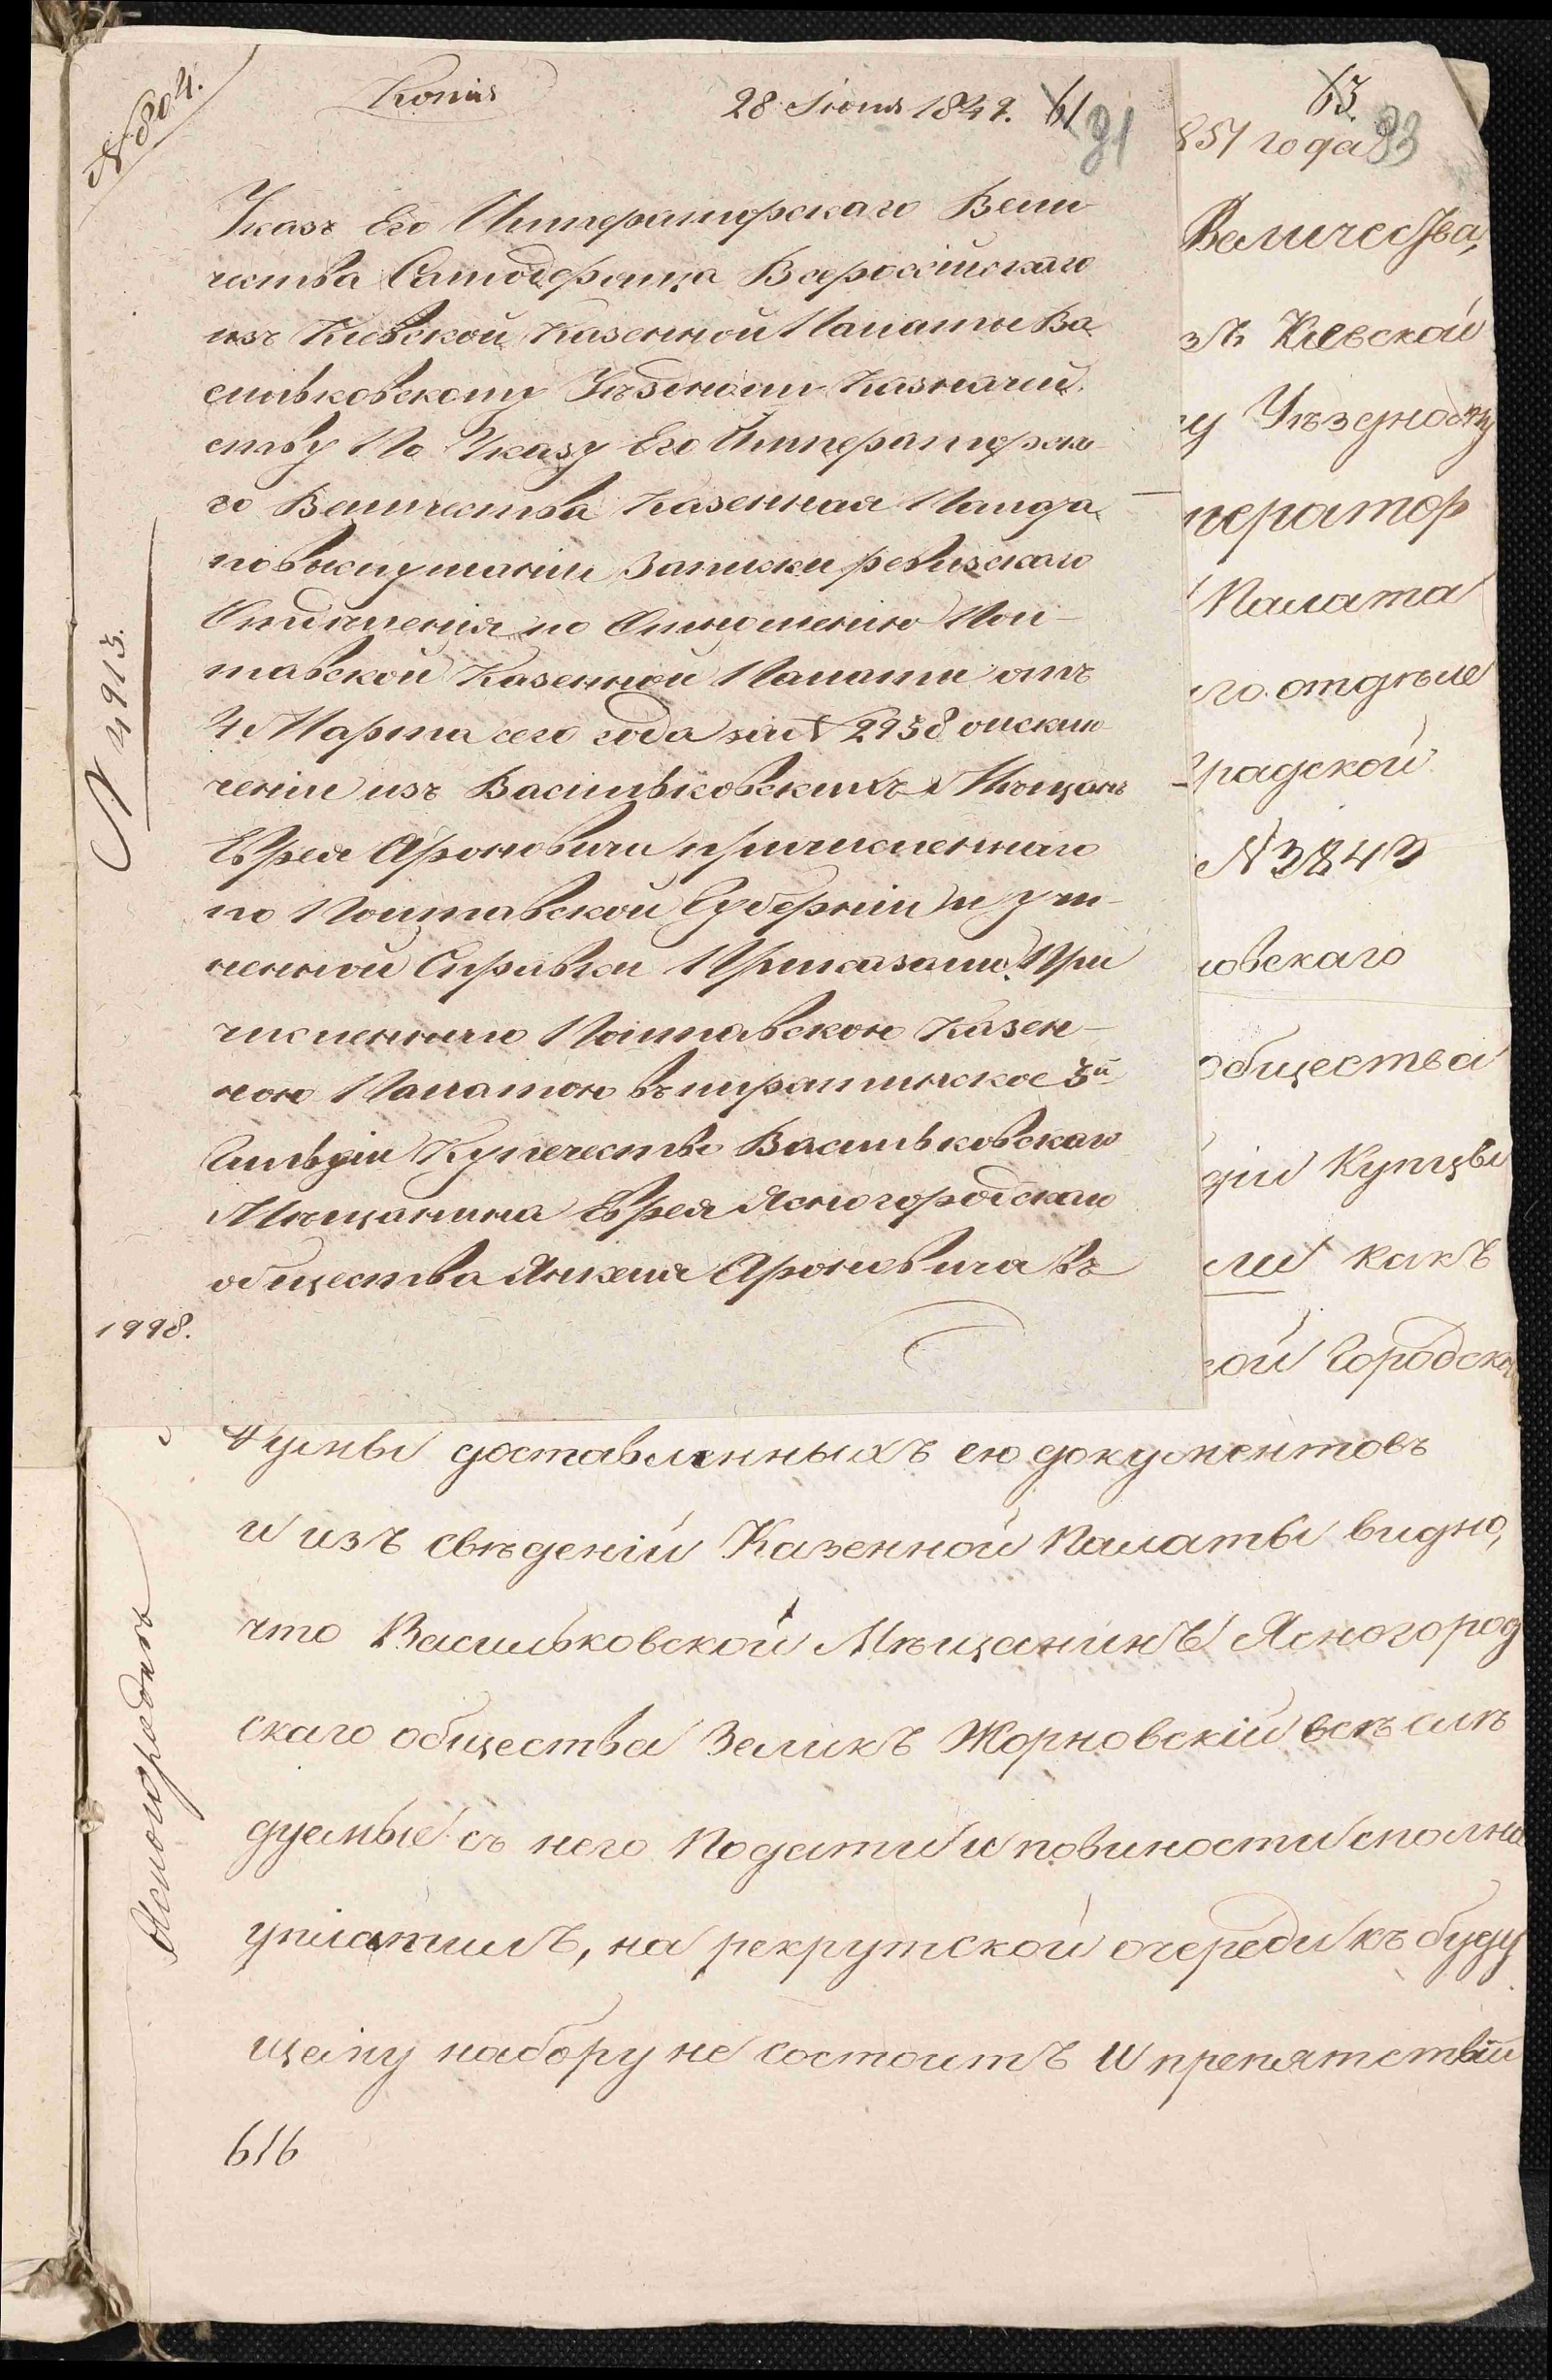 N 804.
Копія
28 Іюня 1849. 61
91
Указъ Его Императорскаго Вели-
чества Самодержца Всероссійскаго
изъ Кіевской Казенной Палаты Ва-
сильковскому Уѣздному Казначей-
ству По Указу Его Императорска-
го Величества Казенная Палата
по выслушаніи Записки ревизскаго
Отдѣленія по Отношенію Пол-
тавской Казенной Палаты отъ
4 Марта сего года за N 2938 о исклю-
ченіи изъ Васильковскихъ Мѣщанъ
Еврея Ароновича причисленнаго
по Полтавской Губерніи и учи-
ненной Справки Приказали: При
численнаго Полтавскою Казен-
ною Палатою въ пирятинское 3й
Гильдіи Купечество Васильковскаго
Мѣщанина Еврея Ясногородскаго
общества Янкеля Ароновича въ
N 4913.
1998.
63.
93
857 года
Величества,
зъ Кіевской
у Уѣздному
ператор
Палата
го отдѣле
градской
N 3843
овскаго
общества
діи Купцы
ли какъ
ой Городско
Думы доставленныхъ ею документовъ
и изъ свѣденій Казенной Палаты видно,
что Васильковской Мѣщанинъ Ясногород
скаго общества Зеликъ Жорновскій всѣ слѣ
дуемые съ него Подати и повиности сполна
уплатилъ, на рекрутской очереди къ буду
щему набору не состоитъ и препятствій
616
Ясногородкъ